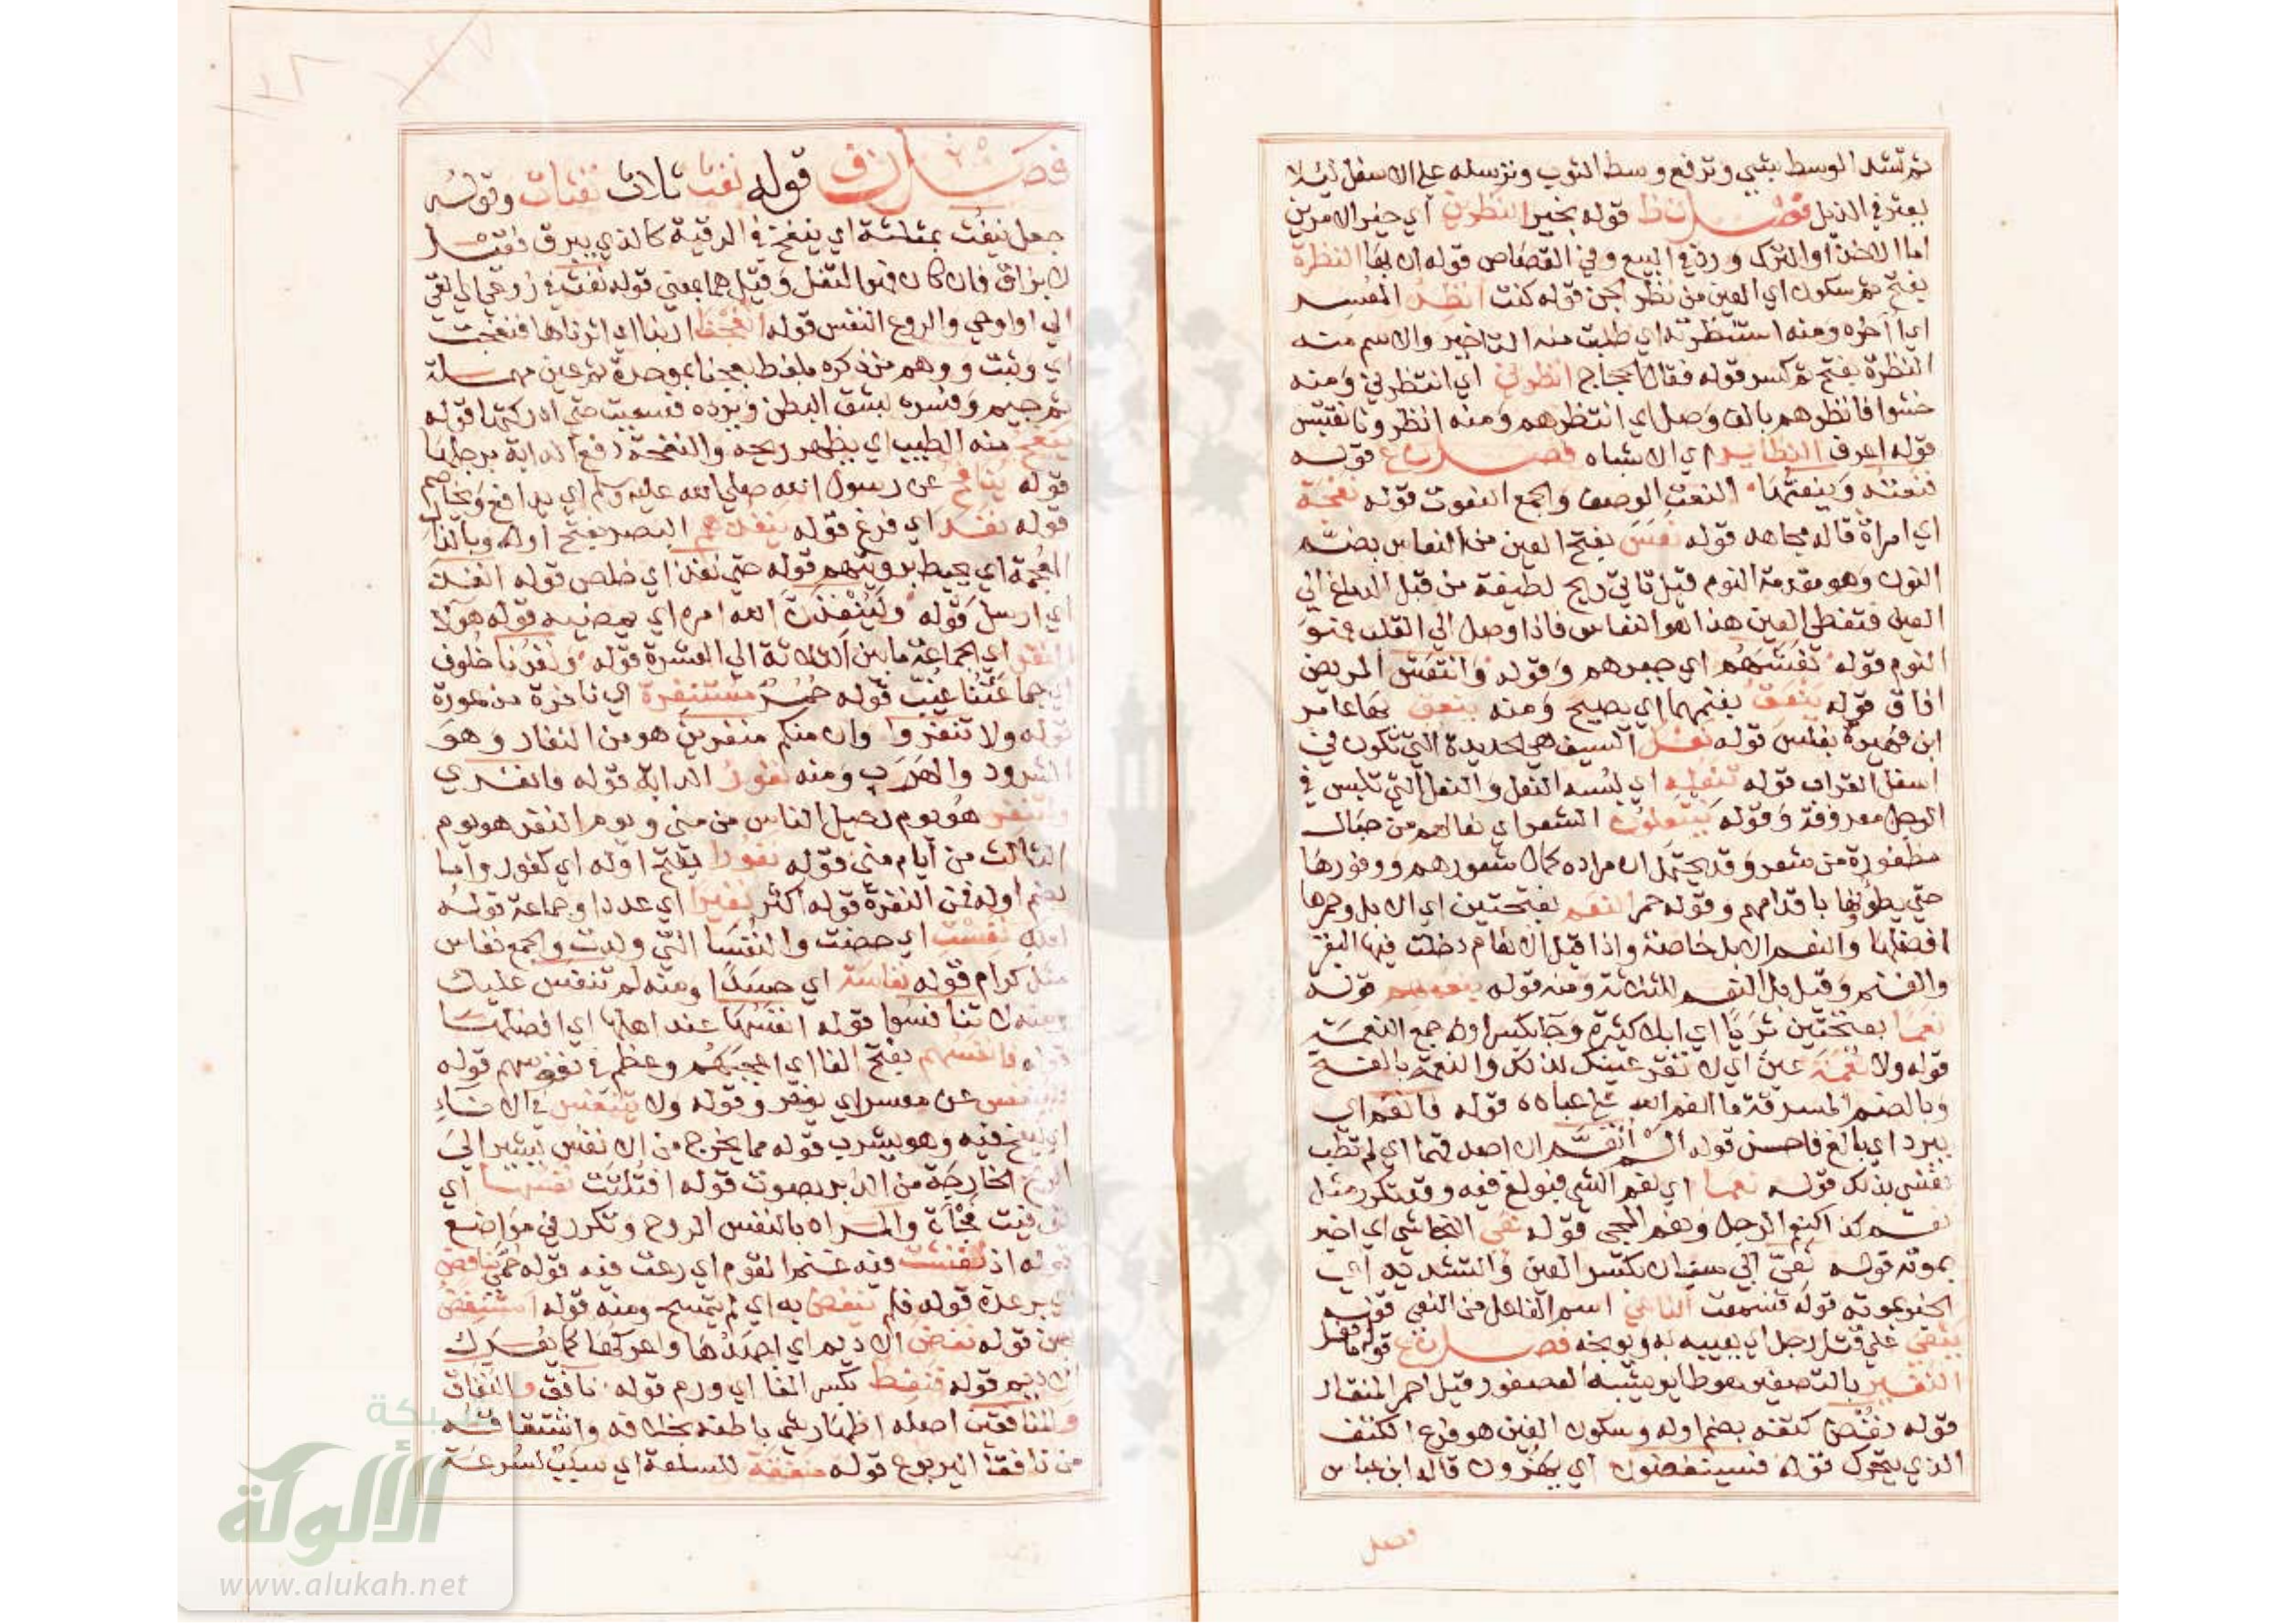 ثم تشد الوسط بشي وترفع وسط الثوب وترسله علي الاسفل ليلا
يعثر في الذيل فصل ن ظ قوله بخير النظرين اي خير الامرين
اما الاخذ او الترك ورد في البيع وفي القصاص قوله ان بها النظرة
بفتح ثم سكون اي العين من نظر الجن قوله كنت انظر المعسر
اي اخره ومنه استنظرته اي طلبت منه التاخير والاسم منه
النظرة بفتح ثم كسر قوله فقال الحجاج انظرني اي انتظرني ومنه
خشوا فانظرهم بالف وصل اي انتظرهم ومنه انظرونا نقتبس
قوله اعرف النظاير اي الاشباه فصل ن ع قوله
فنعته وينعتها النعت الوصف والجمع النعوت قوله نعجة
اي امراة قاله مجاهد قوله نعس بفتح العين من النعاس بضم
النون وهو مقدمة النوم قيل تاتي ريح لطيفة من قبل الدماغ الي
العين فتغطي العين هذا هو النعاس فاذا وصل الي القلب فهو
النوم قوله نعشهم اي جبرهم وقوله وانتعش المريض
افاق قوله ينعق بغنمهما اي يصيح ومنه ينعق بها عامر
ابن فهيرة بغلس قوله نعل السيف هي الحديدة التي تكون في
اسفل القراب قوله تنعله اي لبسه النعل والنعل التي تلبس في
الرجل معروفة وقوله ينتعلون الشعر اي نعالهم من حبال
مظفورة من شعر وقد يحتمل ان مراده كمال شعورهم ووفورها
حتي يطؤنها باقدامهم وقوله حمر النعم بفتحتين اي الابل وحمرها
افضلها والنعم الابل خاصة واذا قيل الانعام دخلت فيها البقر
والغنم وقيل بل النعم الثلاثة ومنه قوله قوله
نعما بفتحتين ثريا اي ابلا كثيرة وجا بكسر اوله جمع النعمة
قوله ولا نعمة عين اي لا تقر عينك لذلك والنعمة بالفتح
وبالضم المسرقة ما انعم الله علي عباده قوله فانعم ان
يبرد اي بالغ فاحسن قوله الم انعم ان اصدقهما اي لم تطب
نفسي بذلك قوله نعما اي نعم الشي فبولغ فيه وقد تكرر مثل
نعم كذا كنعم الرجل ونعم المجي قوله نعي النجاشي اي اخبر
بموته قوله نعي ابي سفيان بكسر العين والتشديد اي
الخبر بموته قوله فسمعت الناعي اسم الفاعل من النعي قوله
ينعي علي قتل رجل اي يعيبه به ويوبخه فصل ن غ قوله ما فعل
النغير بالتصغير هو طاير يشبه العصفور وقيل احمر المنقار
قوله نغض كتفه بضم اوله وسكون الغين هو فرع الكتف
الذي يتحرك قوله فسينغضون اي يهزون قاله ابن عباس
فصل
فصل ن ف قوله نفث ثلاث نفثات وقوله
جعل ينفث بمثلثة اي ينفخ في الرقية كالذي يبزق فقيل
لا بزاق فان كان فهو التفل وقيل هما بمعني قوله نفث في روعي اي القي
الي او اوحي والروع النفس قوله انفجنا ارنبا اي اثرناها فنفجت
اي وثبت ووهم من ذكره بلفظ بعجنا بموحدة ثم عين مهملة
ثم جيم وفسره بشق البطن ويرده فسعيت حتي ادركتها قوله
ينفح منه الطيب اي يظهر ريحه والنفحة دفع الدابة برجلها
قوله ينافح عن رسول الله صلي الله عليه وسلم اي يدافع ويخاصم
قوله نفد اي فرغ قوله ينفذهم البصر بفتح اوله وبالذال
المعجمة اي يحيط برويتهم قوله حتي نفذ اي خلص قوله انفذ
اي ارسل قوله ولينفذن الله امره اي يمضيه قوله هولا
النفر اي الجماعة ما بين الثلاثة الي العشرة قوله ونفرنا خلوف
اي جماعتنا غيب قوله حمر مستنفرة اي نافرة مذعورة
قوله ولا تنفروا وان منكم منفرين هو من النفار وهو
الشرود والهرب ومنه نفور الدابة قوله فانفري
وانفر هو يوم رحيل الناس من مني ويوم النفر هو يوم
الثالث من ايام مني قوله نفورا بفتح اوله اي كفور واما
بضم اوله فمن النفرة قوله اكثر نفيرا اي عددا وجماعة قوله
لعلك نفست اي حضت والنفسا التي ولدت والجمع نفاس
مثل كرام قوله نفاسة اي حسدا ومنه لم تنفس عليك
ومنه لا تنافسوا قوله انفسها عند اهلها اي افضلها
قوله فانفسهم بفتح الفا اي اعجبهم وعظم في نفوسهم قوله
فلينفس عن معسر اي يوخر وقوله ولا يتنفس في الاناء
اي ينفخ فيه وهو يشرب قوله مما يخرج من الانفس يشير الي
الريح الخارجة من الدبر بصوت قوله افتلتت نفسها اي
توفيت فجأة والمراد بالنفس الروح وتكرر في مواضع
قوله اذ نفشت فيه غنم القوم اي رعت فيه قوله حمي نافض
اي برعدة قوله فلم ينفض به اي لم يتمسح ومنه قوله استنفض
من قوله نفض الاديم اي اجهدها واعركها كما يفرك
الاديم قوله فنفط بكسر الفا اي ورم قوله نافق والنفاق
والمنافقين اصله اظهار شي باطنه بخلافه واشتقاقه
من نافقا اليربوع قوله منفقة للسلعة اي سبب لسرعة
شبكة
الألوكة
www.alukah.net